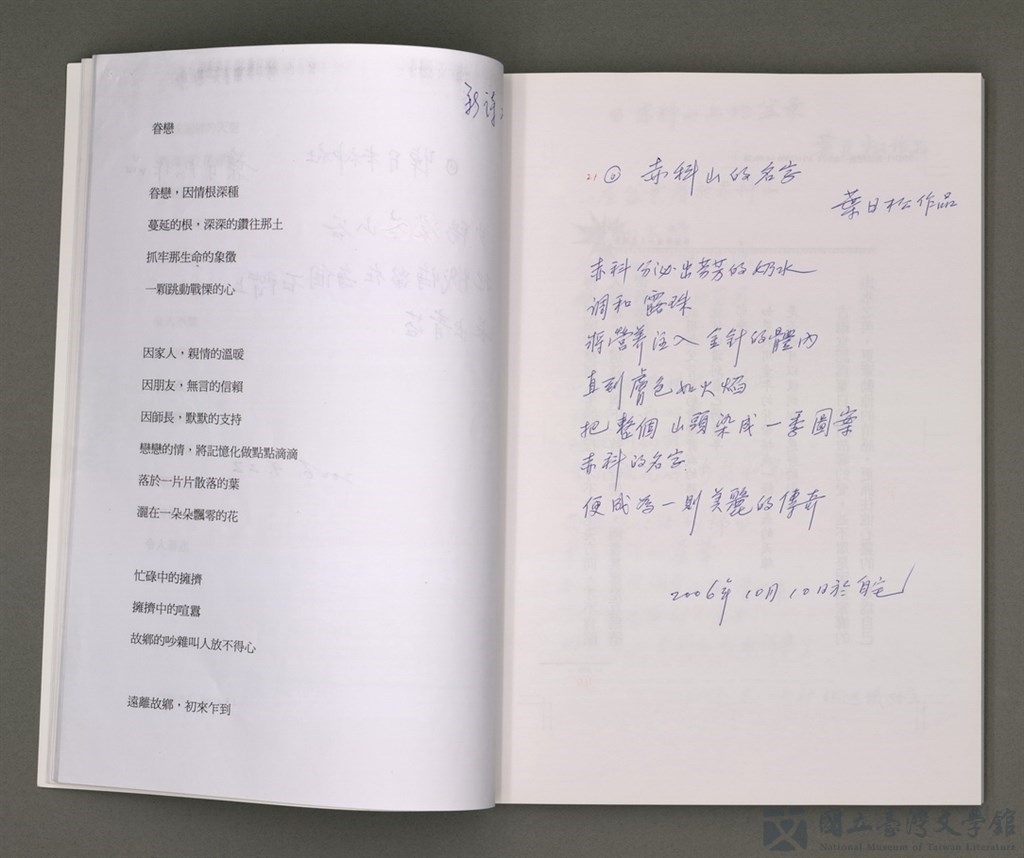 新詩
眷戀
眷戀，因情根深種
蔓延的根，深深的鑽往那土
抓牢那生命的象徵
一顆跳動戰慄的心
因家人，親情的溫暖
因朋友，無言的信賴
因師長，默默的支持
戀戀的情，將記憶化做點點滴滴
落於一片片散落的葉
灑在一朵朵飄零的花
忙碌中的擁擠
擁擠中的喧囂
故鄉的吵雜叫人放不得心
遠離故鄉，初來乍到
21 赤科山的名字
葉日松作品
赤科分泌出芬芳的奶水
调和露珠
將營养注入金針的體內
直到膚色如火焰
把整個山頭染成一季圖案
赤科的名字
便成為一則美麗的傳奇
2006年10月10日於自宅
國立臺灣文學館
National Museum of Taiwan Literature